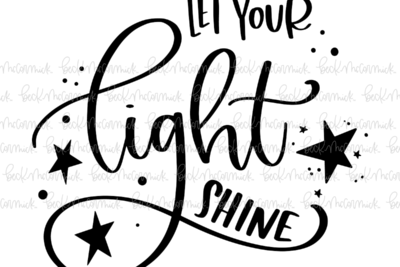 LET YOUR
light
SHINE